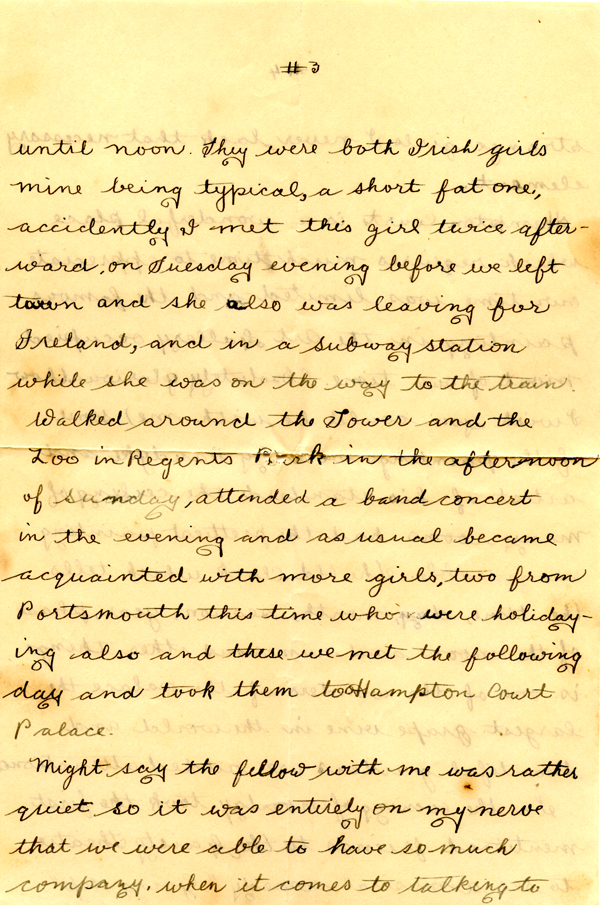 # 3
until noon. They were both Irish girls
mine being typical, a short fat one,
accidently I met this girl twice after-
ward, on Tuesday evening before we left
town and she also was leaving for
Ireland, and in a subway station
while she was on the way to the train.
Walked around the Tower and the
Zoo in Regents Park in the afternoon
of Sunday, attended a band concert
in the evening and as usual became
acquainted with more girls, two from
Portsmouth this time who were holiday-
ing also and these we met the following
day and took them to Hampton Court
Palace.
Might say the fellow with me was rather
quiet so it was entirely on my nerve
that we were able to have so much
company. when it comes to talking to